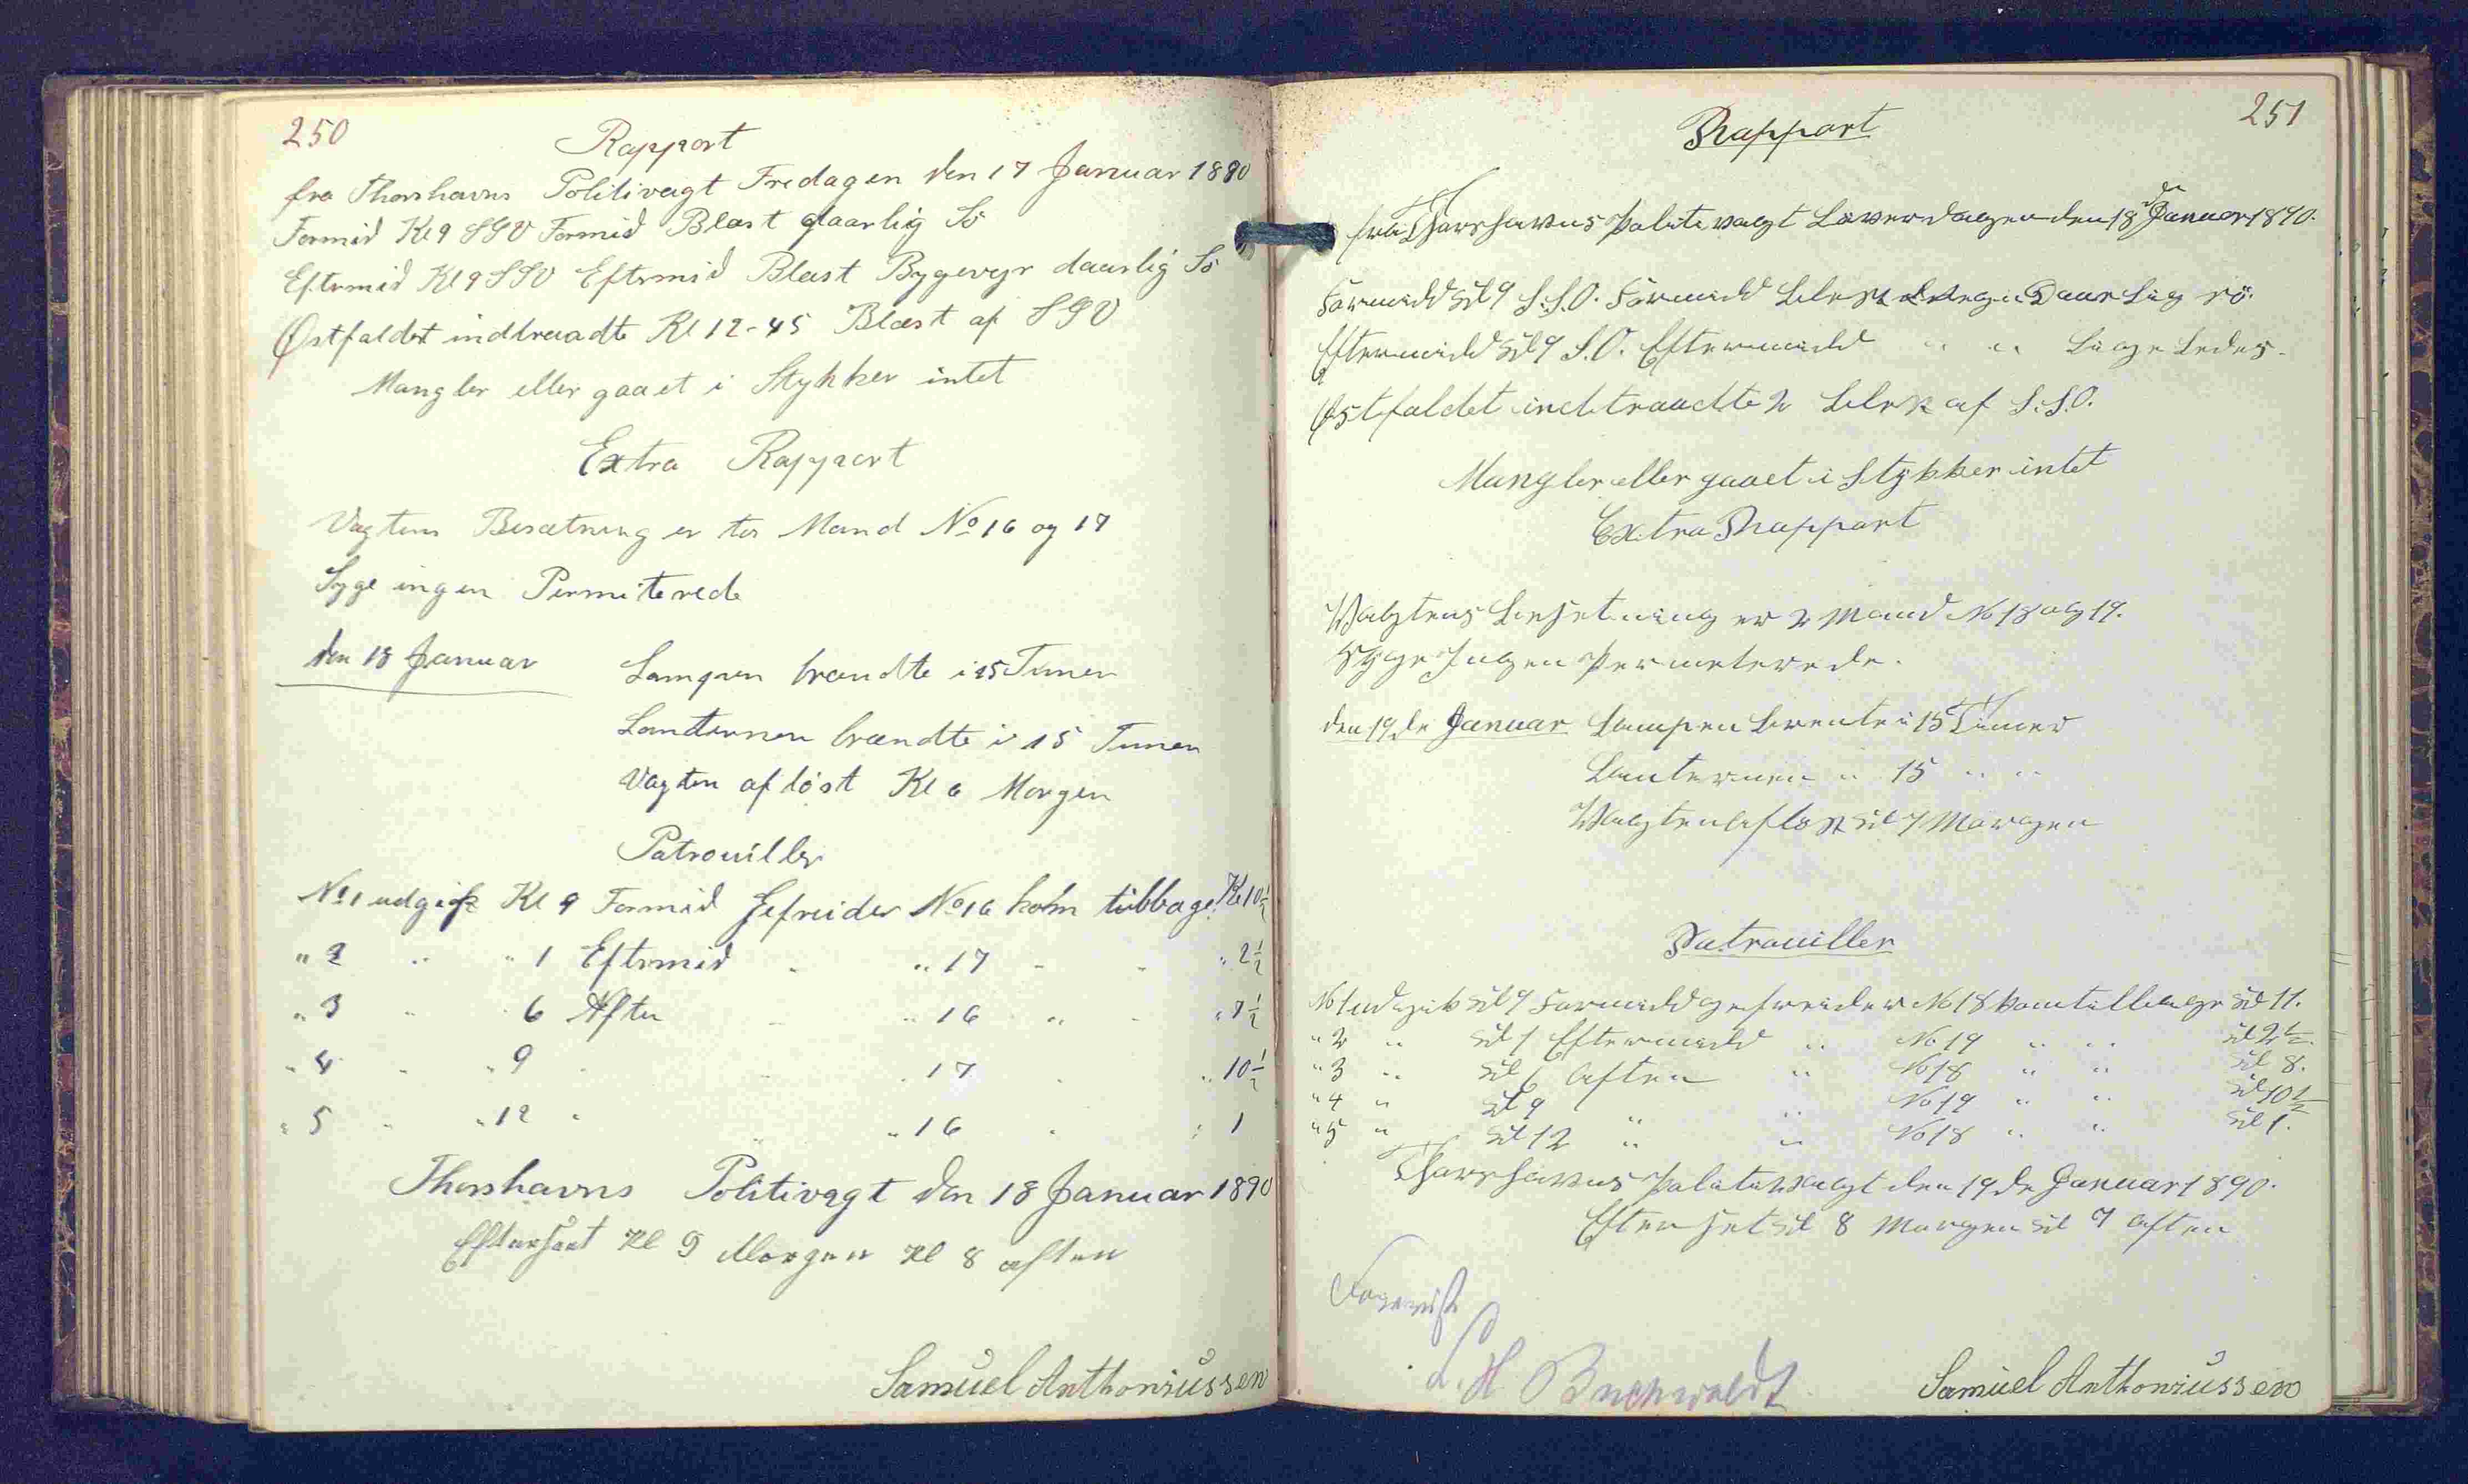 250
Rapport
fra Thorshavns Politivagt Fredagen den 17 Januar 1890
Formid Kl 9 SSV Formid Blæst daarlig Sö
Eftermid Kl 9 SSV Eftermid Blæst Bygeveyr daarlig Sö
Østfaldet indtraadte Kl 12-45 Blæst af SSV
Mangler eller gaaet i Stykker intet
Extra Rapport
Vagtens Besætning er to Mand No 16 og 17
Syge ingen Permiterede
den 18 Januar Lampen brændte i 15 Timer
Lanternen brændte i 15 Timer
Vagten aflöst Kl 6 Morgen
Patrouiller
No 1 udgik Kl 9 Formid Gefreider No 16 kom tilbbage Kl 10½
" 2 " " 1 Eftermid " " 17 " " " 2½
" 3 " " 6 Aften " " 16 " " " 7½
" 4 " " 9 " " " 17 " " " 10½
" 5 " " 12 " " " 16 " " " 1
Thorshavns Politivagt den 18 Januar 1890
Efterseet Kl 9 Morgen Kl 8 aften
Samuel Anthoniussen
251
Rapport
fra Thorshavns Politivagt Löverdagen den 18de Januar 1890.
Formidd Kl 9 S.S.O. Formidd Blest Daarlig sö.
Eftermidd Kl 9 S.O. Eftermidd " " Ligeledes.
Østfaldet indtraadte 2 Blest af S.S.O.
Mangler eller gaaet i Stykker intet
Extra Rapport
Vagtens Besetning er 2 Mand No 18 og 19.
Syge Ingen Permeterede.
den 19de Januar Lampen Brente i 15 Timer
Lanternen " 15 " "
Vagten aflöst Kl 7 Morgen
Patrouiller
No 1 udgik Kl 9 Formidd gefreider No 18 kom tilbage Kl 11.
" 2 " Kl 1 Eftermidd " No 19 " " Kl 2½.
" 3 " Kl 6 aften " No 18 " " Kl 8.
" 4 " Kl 9 " " No 19 " " Kl 10½
" 5 " Kl 12 " " No 18 " " Kl 1.
Thorshavns Politivagt den 19de Januar 1890.
Efterset Kl 8 Morgen Kl 7 aften
Forevist
L. H. Buchwaldt
Samuel Anthoniussen